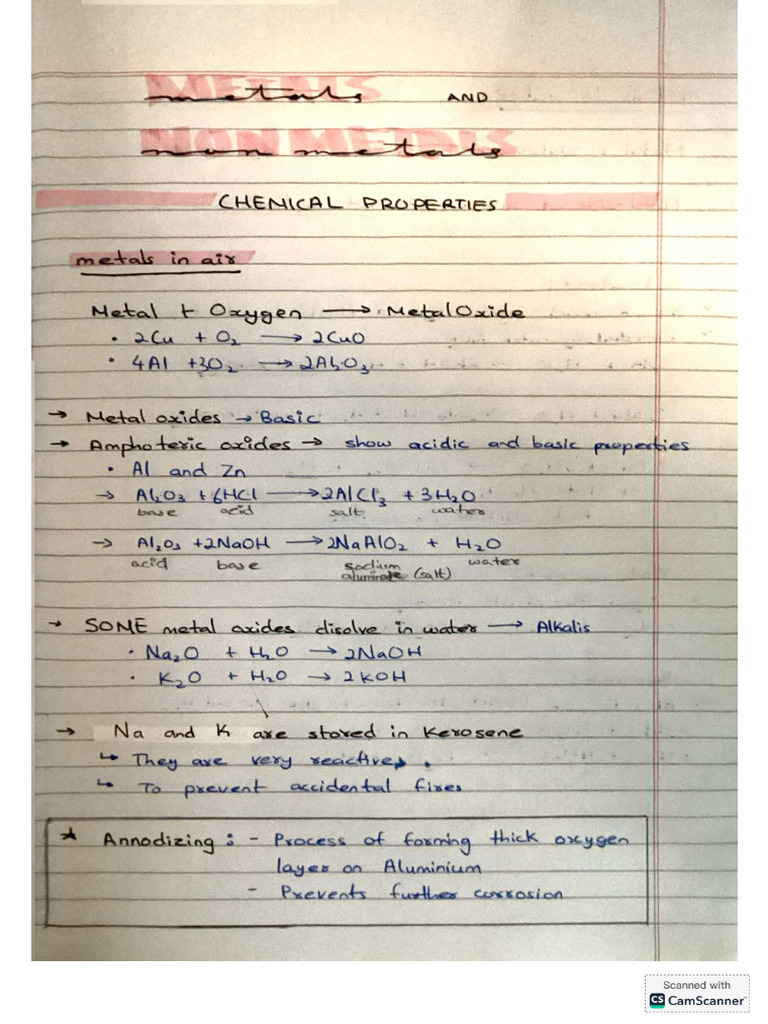 METALS
metals AND
NON METALS
non metals
CHEMICAL PROPERTIES
metals in air
Metal + Oxygen → Metal Oxide
• 2Cu + O₂ → 2CuO
• 4Al + 3O₂ → 2Al₂O₃
→ Metal oxides → Basic
→ Amphoteric oxides → show acidic and basic properties
• Al and Zn
→ Al₂O₃ + 6HCl → 2AlCl₃ + 3H₂O
base acid salt water
→ Al₂O₃ + 2NaOH → 2NaAlO₂ + H₂O
acid base sodium water
aluminate (salt)
→ SOME metal oxides disolve in water → Alkalis
• Na₂O + H₂O → 2NaOH
• K₂O + H₂O → 2KOH
→ Na and K are stored in Kerosene
↳ They are very reactive.
↳ To prevent accidental fires
★ Annodizing : - Process of forming thick oxygen
layer on Aluminium
- Prevents further corrosion
Scanned with
CS CamScanner